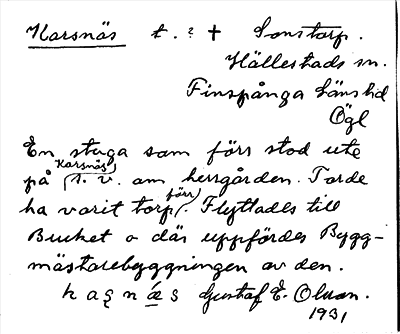 Karsnäs t. ? † Sonstorp.
Hällestads sn.
Finspånga länshd
Ögl
En stuga som förr stod ute
på Karsnäs s. v. om herrgården. Torde
ha varit torp förr. Flyttades till
Bucket o där uppfördes Bygg-
mästarebyggningen av den.
kaʂnæs Gustaf E. Olsson.
1931